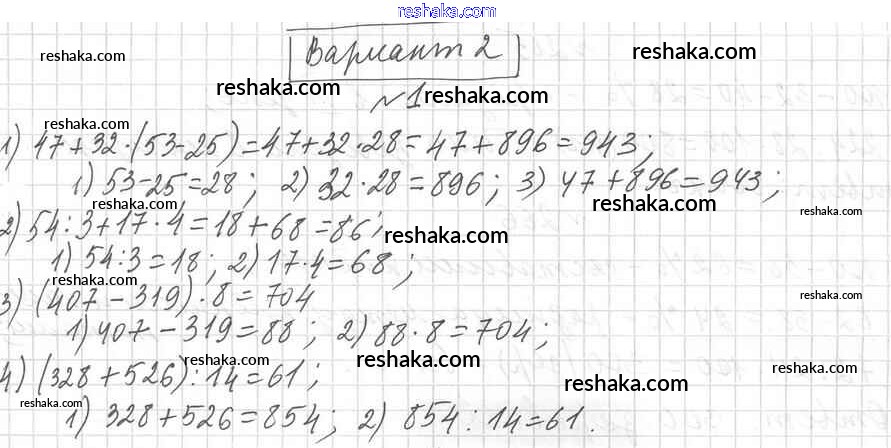 reshaka.com
Вариант 2
reshaka.com
reshaka.com
reshaka.com
№1 reshaka.com
reshaka.com
1) 47+32·(53-25)=47+32·28=47+896=943;
1) 53-25=28; 2) 32·28=896; 3) 47+896=943;
reshaka.com
reshaka.com
reshaka.com
2) 54:3+17·4=18+68=86;
reshaka.com
1) 54:3=18; 2) 17·4=68;
reshaka.com
3) (407-319)·8=704
reshaka.com
1) 407-319=88; 2) 88·8=704;
reshaka.com
reshaka.com
4) (328+526):14=61;
reshaka.com
reshaka.com
1) 328+526=854; 2) 854:14=61.